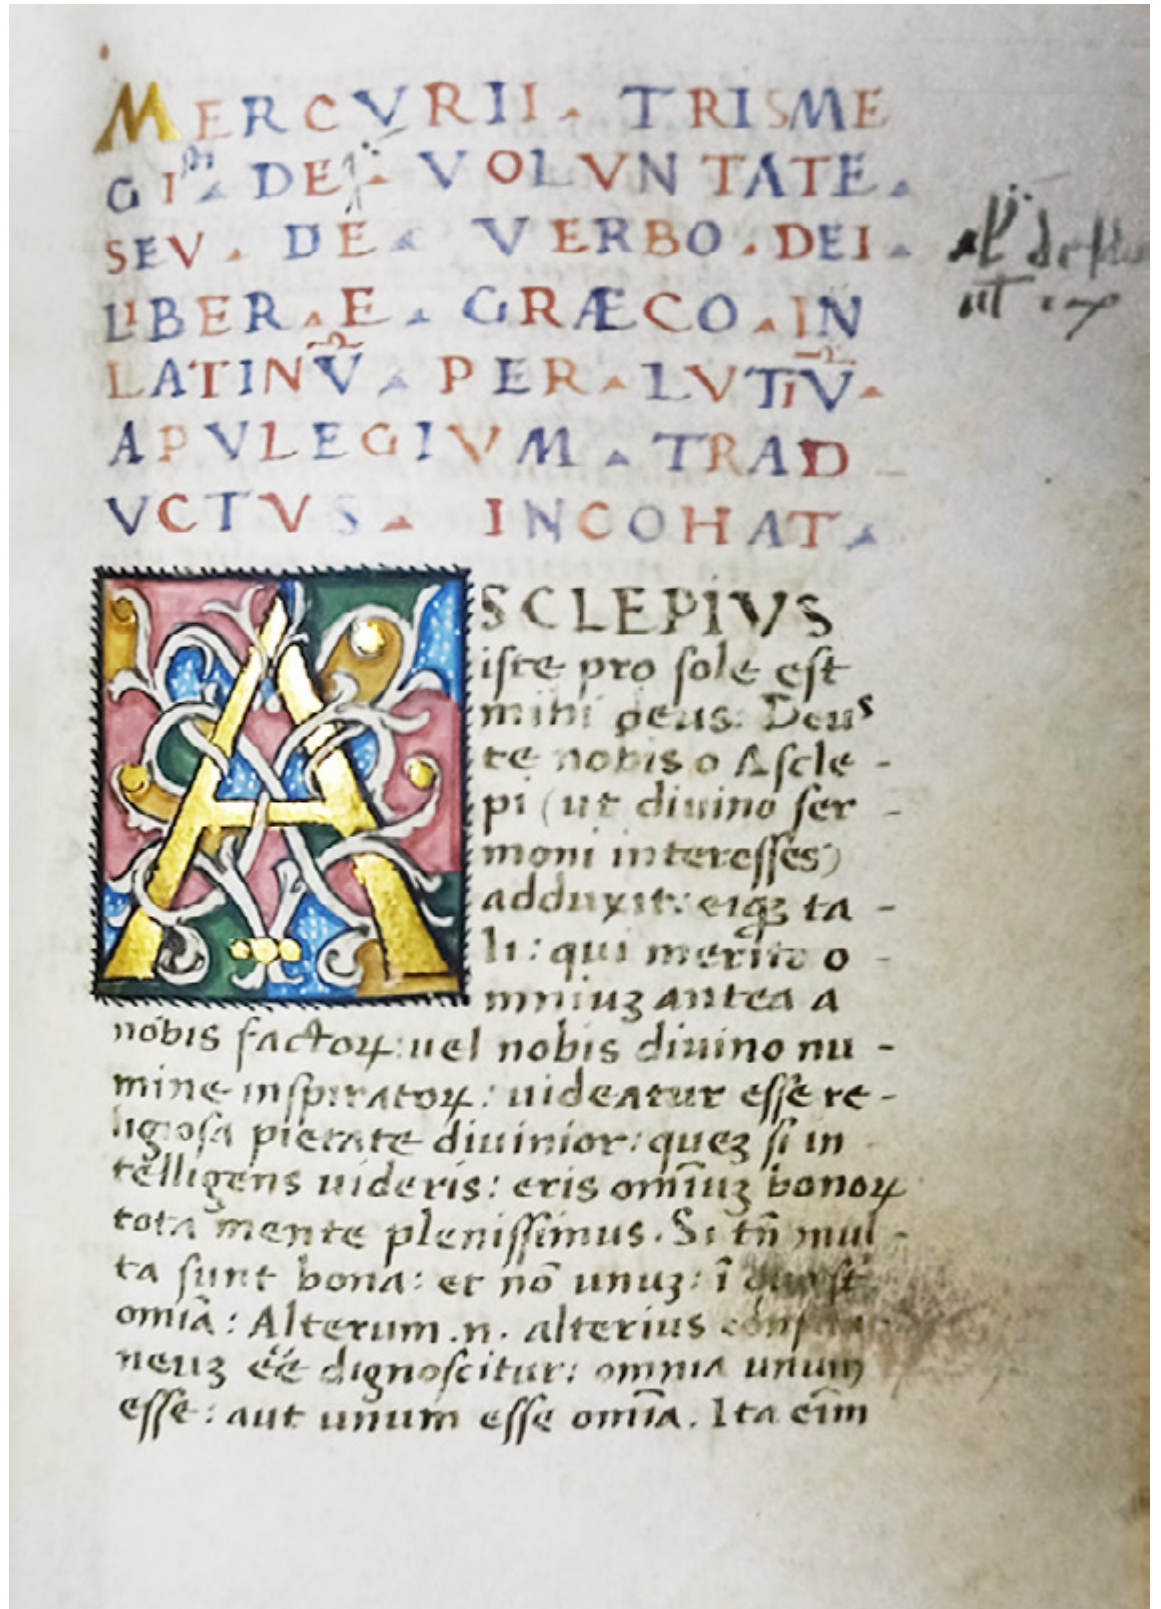 MERCVRII. TRISME
GI DE VOLVNTATE.
SEV. DE VERBO. DEI.
LIBER. E. GRÆCO. IN
LATINV̄. PER. LVTIV̄.
APVLEGIVM. TRAD
VCTVS. INCOHAT.
ASCLEPIVS
iste pro sole est
mihi deus: Deus
te nobis o Ascle-
pi (ut diuino ser-
moni interesses)
adduxit: eiqꝫ ta-
li: qui merito o-
mniuꝫ antea a
nobis factoꝝ: uel nobis diuino nu-
mine inspiratoꝝ: uideatur esse re-
ligiosa pietate diuinior: queꝫ si in
telligens uideris: eris omīuꝫ bonoꝝ
tota mente plenissimus. Si tn̄ mul-
ta sunt bona: et nō unuꝫ: ī
omīa: Alterum .n. alterius
neuꝫ ēē dignoscitur: omnia unum
esse: aut unum esse omīa. Ita eīm